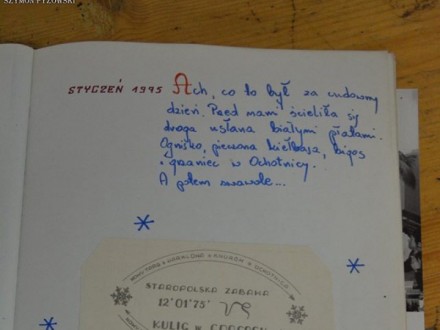 SZYMON PYZOWSKI
STYCZEŃ 1975 Ach, co to był za cudowny
dzień. Przed nami ścieliła się
droga usłana białymi płatami.
Ognisko, pieczona kiełbasa, bigos
i grzaniec w Ochotnicy.
A potem swawole...
STAROPOLSKA ZABAWA
12'01'75'
KULIG w GORCACH